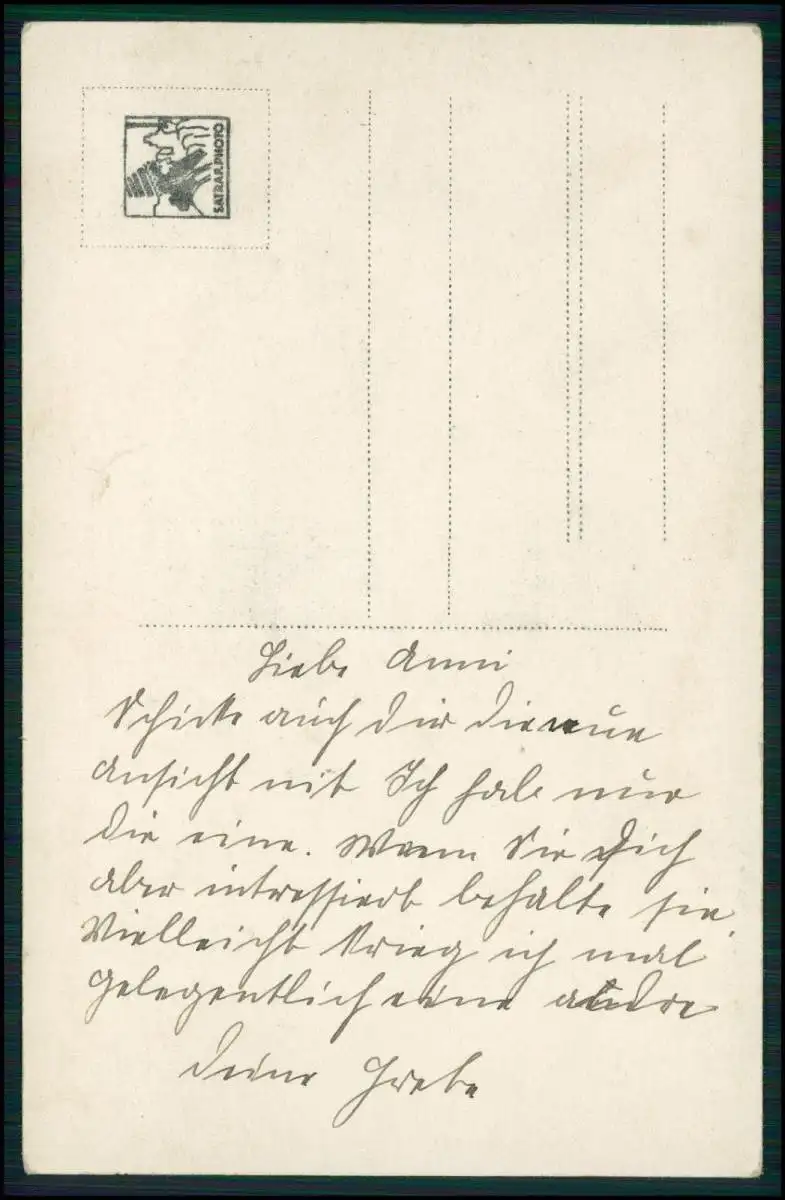 SATRAP.PHOTO
Liebe Anni
Schicke auch dir die neue
Ansicht mit Ich hab nur
die eine. Wenn Sie Dich
aber intressiert behalte sie.
Vielleicht krieg ich mal
gelegentlich eine andre
Deine Grete